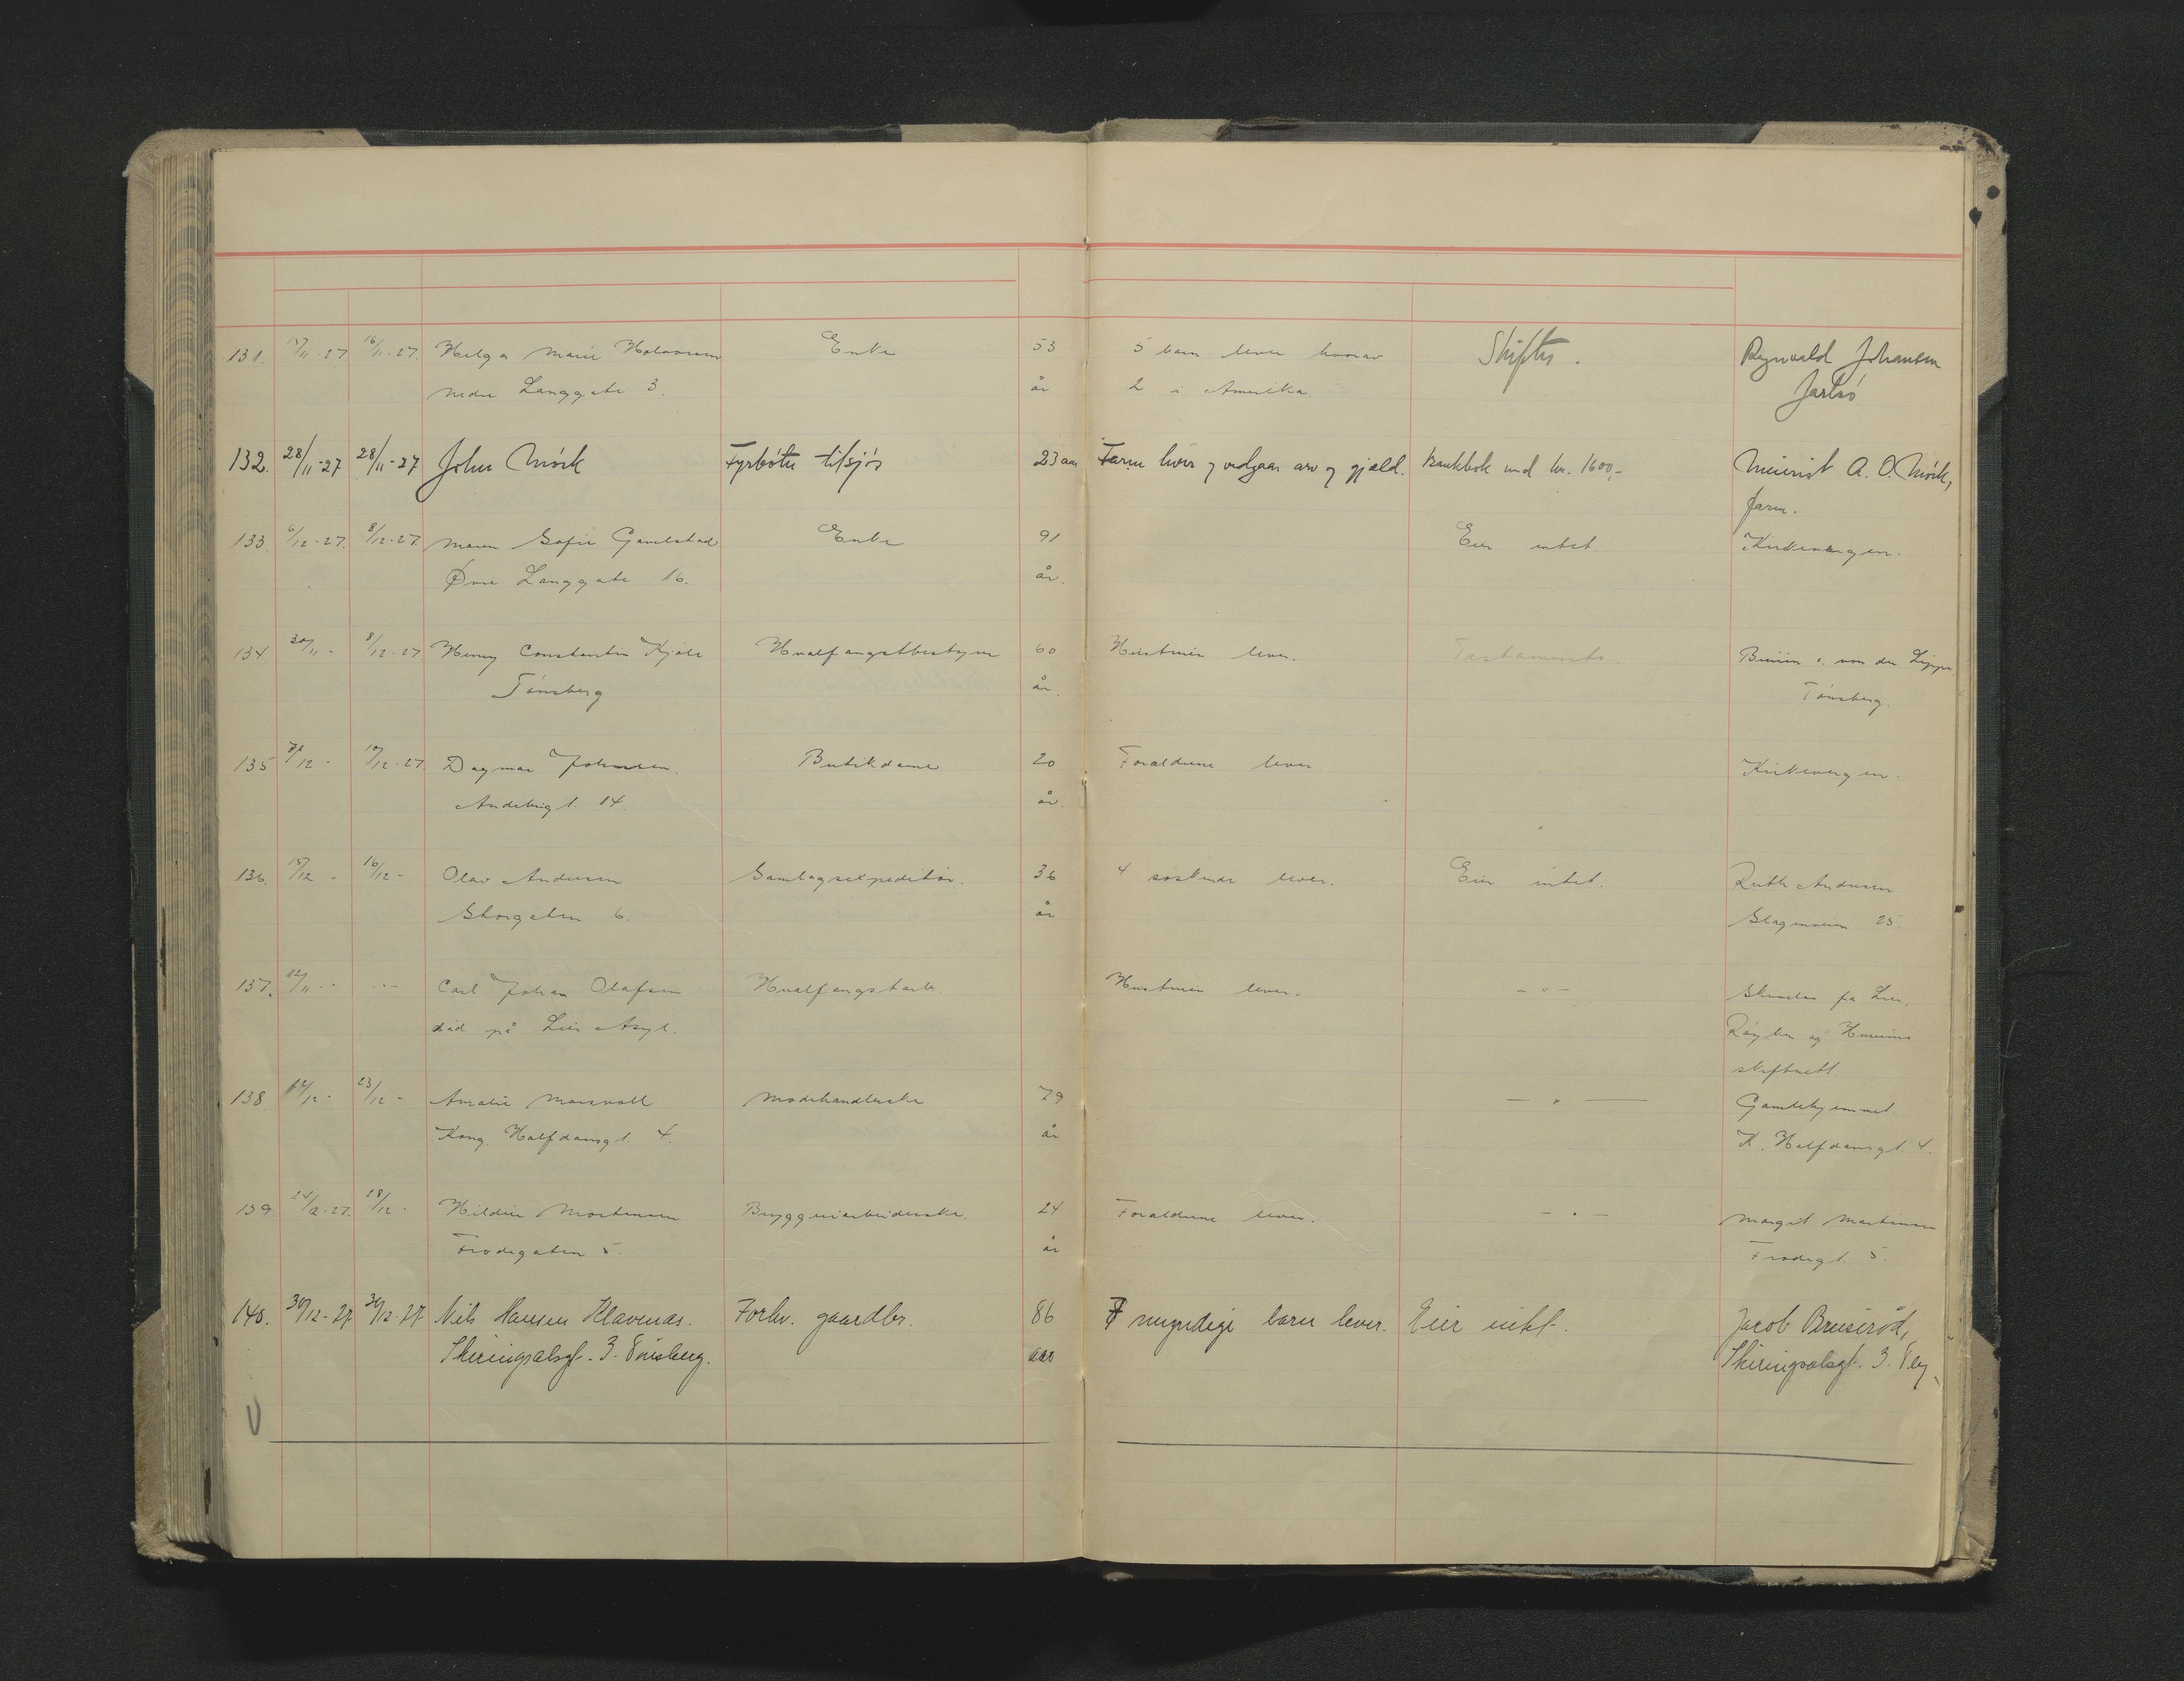 131. 15/11-27 16/11-27. Helga Marie Halvorsen Enke 53 5 barn lever hvorav Skiftes. Regnvald Johansen
Nedre Langgate 3. år 2 i Amerika Jarlsö
132. 28/11-27 28/11-27 John Mörk Fyrböter tilsjös 23 aar Faren lever og vedgaar arv og gjæld. Bankbok med kr. 1600,- Meierist A. O. Mörk,
133 6/12-27. 8/12-27. Maren Sofie Gavelstad Enke 91 Eier intet. Kirkevergen.
Övre Langgate 16. år.
134. 30/11 - 8/12-27. Henny Constantin Kjær Hvalfangstbestyrer 60 Hustruen lever. Testamente. von der Lippe
Tönsberg år. Tönsberg.
135 8/12 - 10/12-27 Dagmar Johnsen. Butikdame 20 Foraldrene lever Kirkevergen.
Andebugt. 14 år.
136. 15/12 - 16/12 - Olav Andersen Samlagsexpeditör. 36 4 söskende lever. Eier intet. Ruth Andersen
Storgaten 6. år Slagenveien 25
137. 12/11 - - - - - Carl Johan Olafsen Hvalfangstarb. Hustruen lever. - " - Skrivelse fra Lier,
död på Lier Asyl. Röyken og Hurums
skifterett.
138 14/12 - 23/12 - Amalie Modehandlerske 79 - " - Gamlehjemmet
Kong Halfdansgt. 4. år K. Halfdansgt. 4.
139 24/12-27. 28/12 - Hildur Mortensen Bryggeriarbeiderske. 24 Foraldrene lever. - " - Margit Martinsen
Frodegaten 5. år Frodegt. 5.
140. 30/12-27 30/12-27 Nils Hansen Klavenæs. Forhv. gaardbr. 86 7 myndige barn lever. Eier intet. Jacob Bruseröd,
Skiringsalsgt. 3. Tönsberg. aar Skiringsalsgt. 3. Tbg.